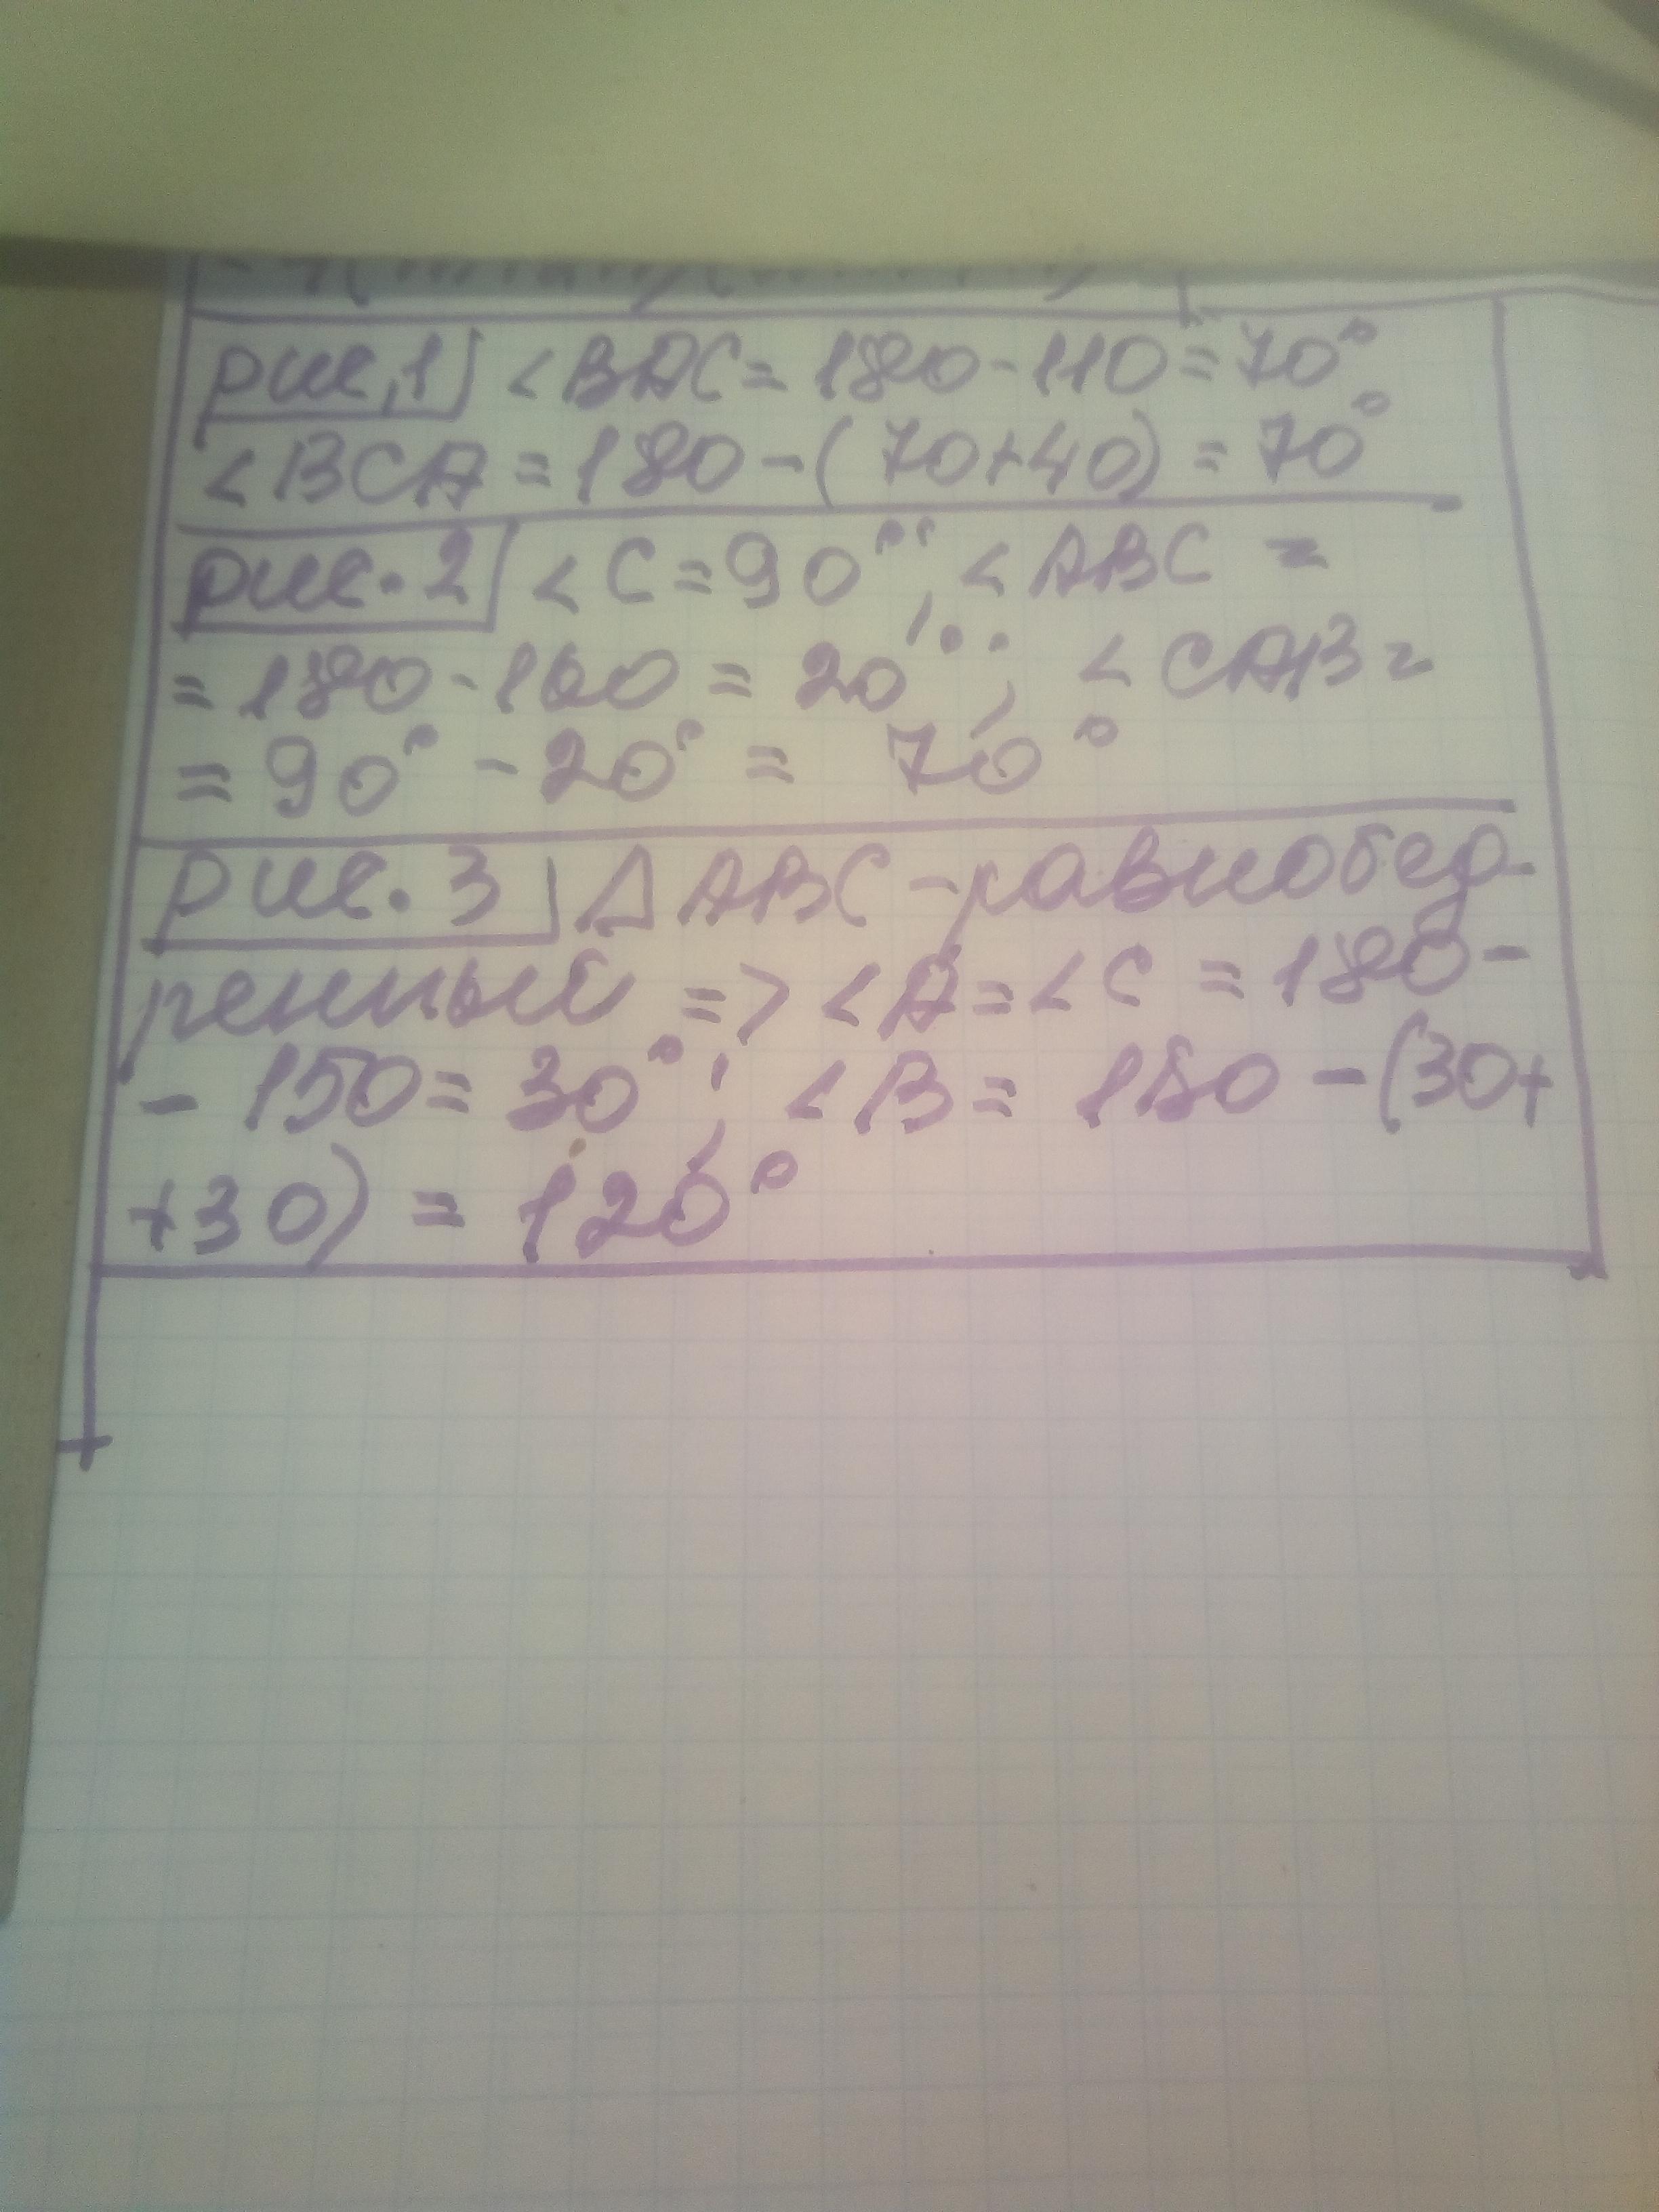 рис.1 <BAC = 180-110=70°
<BCA = 180-(70+40) = 70°
рис.2 <C=90°; <ABC =
= 180-160 = 20°; <CAB=
= 90° - 20° = 70°
рис.3 ΔABC -равнобед-
ренный => <A=<C = 180-
- 150= 30°; <B= 180-(30+
+30) = 120°